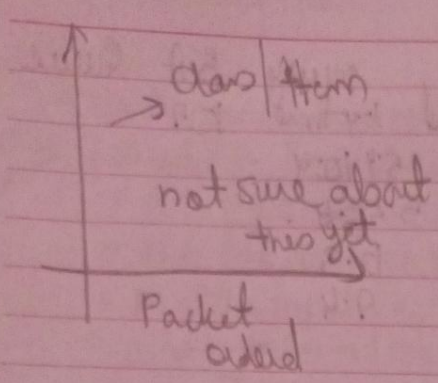 class | Item
not sure about
this yet
Packet
ordered